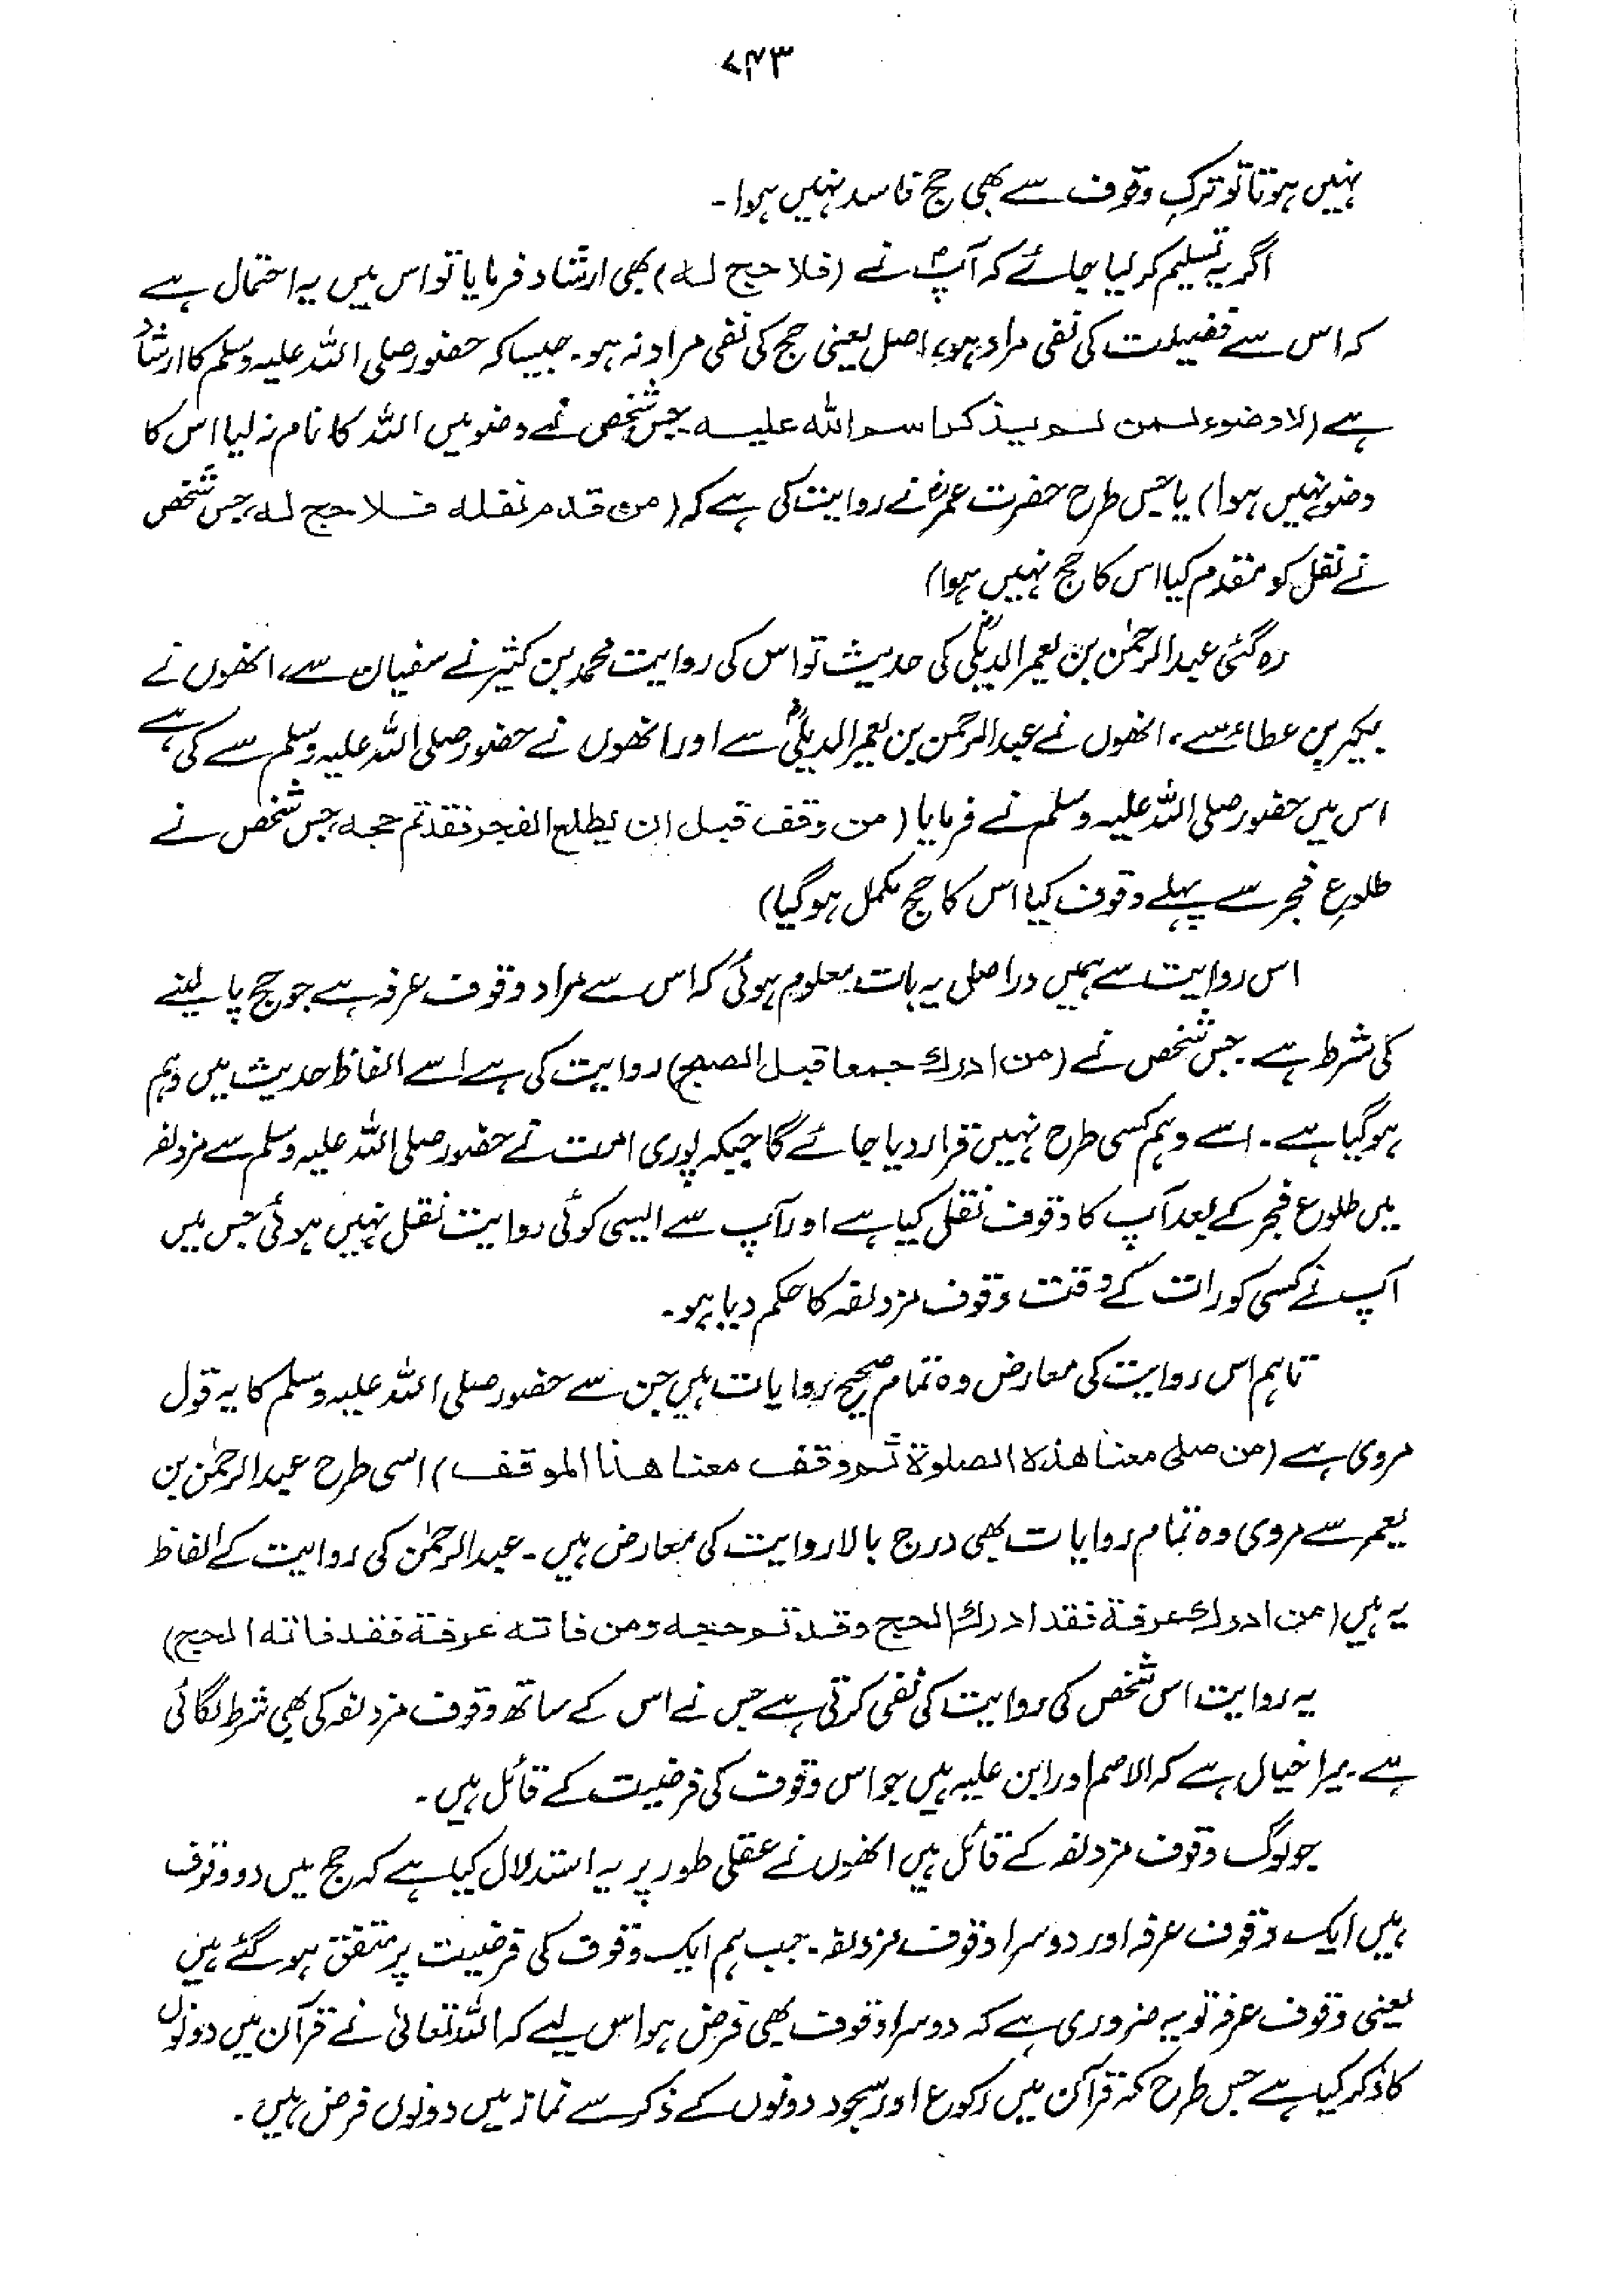 ۷۴۳
نہیں ہوتا تو ترکِ وقوف سے بھی حج فاسد نہیں ہوا۔
اگر یہ تسلیم کر لیا جائے کہ آپؐ نے (فلا حج لہ) بھی ارشاد فرمایا تو اس میں یہ احتمال ہے
کہ اس سے فضیلت کی نفی مراد ہو، اصل یعنی حج کی نفی مراد نہ ہو۔ جیسا کہ حضور صلی اللہ علیہ وسلم کا ارشاد
ہے (لا وضوء لمن لم یذکر اسم اللہ علیہ۔ جس شخص نے وضو میں اللہ کا نام نہ لیا اس کا
وضو نہیں ہوا) یا جس طرح حضرت عمرؓ نے روایت کی ہے کہ (من قدم نفلہ فلا حج لہ، جس شخص
نے نفل کو مقدم کیا اس کا حج نہیں ہوا)
رہ گئی عبدالرحمٰن بن یعمر الدیلیؓ کی حدیث تو اس کی روایت محمد بن کثیر نے سفیان سے، انھوں نے
بکیر بن عطاء سے، انھوں نے عبدالرحمٰن بن یعمر الدیلیؓ سے اور انھوں نے حضور صلی اللہ علیہ وسلم سے کی ہے
اس میں حضور صلی اللہ علیہ وسلم نے فرمایا (من وقف قبل ان یطلع الفجر فقد تم حجہ، جس شخص نے
طلوعِ فجر سے پہلے وقوف کیا اس کا حج مکمل ہو گیا)
اس روایت سے ہمیں دراصل یہ بات معلوم ہوئی کہ اس سے مراد وقوف عرفہ ہے جو حج پا لینے
کی شرط ہے۔ جس شخص نے (من ادرک جمعا قبل الصبح) روایت کی ہے اسے الفاظ حدیث میں وہم
ہو گیا ہے۔ اسے وہم کسی طرح نہیں قرار دیا جائے گا جبکہ پوری امت نے حضور صلی اللہ علیہ وسلم سے مزدلفہ
میں طلوع فجر کے بعد آپ کا وقوف نقل کیا ہے اور آپ سے ایسی کوئی روایت نقل نہیں ہوئی جس میں
آپ نے کسی کو رات کے وقت وقوف مزدلفہ کا حکم دیا ہو۔
تاہم اس روایت کی معارض وہ تمام صحیح روایات ہیں جن سے حضور صلی اللہ علیہ وسلم کا یہ قول
مروی ہے (من صلی معنا ھذہ الصلوۃ ثم وقف معنا ھذا الموقف) اسی طرح عبدالرحمٰن بن
یعمر سے مروی وہ تمام روایات بھی درج بالا روایت کی معارض ہیں۔ عبدالرحمٰن کی روایت کے الفاظ
یہ ہیں (من ادرک عرفۃ فقد ادرک الحج وقد تم حجہ ومن فاتہ عرفۃ فقد فاتہ الحج)
یہ روایت اس شخص کی روایت کی نفی کرتی ہے جس نے اس کے ساتھ وقوف مزدلفہ کی بھی شرط لگائی
ہے۔ میرا خیال ہے کہ الاصم اور ابن علیہ ہیں جو اس وقوف کی فرضیت کے قائل ہیں۔
جو لوگ وقوف مزدلفہ کے قائل ہیں انھوں نے عقلی طور پر یہ استدلال کیا ہے کہ حج میں دو وقوف
ہیں ایک وقوف عرفہ اور دوسرا وقوف مزدلفہ۔ جب ہم ایک وقوف کی فرضیت پر متفق ہو گئے ہیں
یعنی وقوف عرفہ تو یہ ضروری ہے کہ دوسرا وقوف بھی فرض ہو اس لیے کہ اللہ تعالیٰ نے قرآن میں دونوں
کا ذکر کیا ہے جس طرح کہ قرآن میں رکوع اور سجود دونوں کے ذکر سے نماز میں دونوں فرض ہیں۔